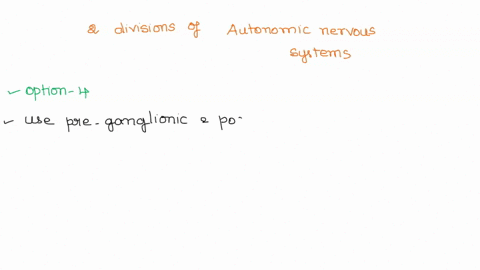 2 divisions of Autonomic nervous
systems
✓ option-4
✓ use pre-ganglionic & po